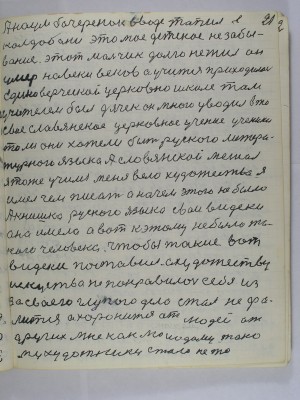 21
калдобани это мое детское незабы-
вание. этот малчик долго не жил он
умер на веки веков а учится приходилос
в церковно школе там
учителем был дячек он много уводил в то
свое славянское церковное учение
то ми они хотели быт руского литера-
турного языка А словянской мешал
я тоже учился меня вело художества я
имел чем писат а начем этого не было
Акнишко руского языка свои видеки
оно имело а вот к этому небыло та-
кого человека, чтобы такие вот
видеки поставил
искуства не понравилос себя из
за своего глупого дело стал не
а хоронится от людей от
других мне как молодому тако
му художнику стало не то